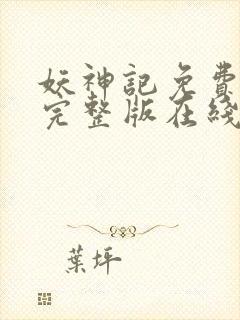 妖神記免費
完整版在綫
葉坪